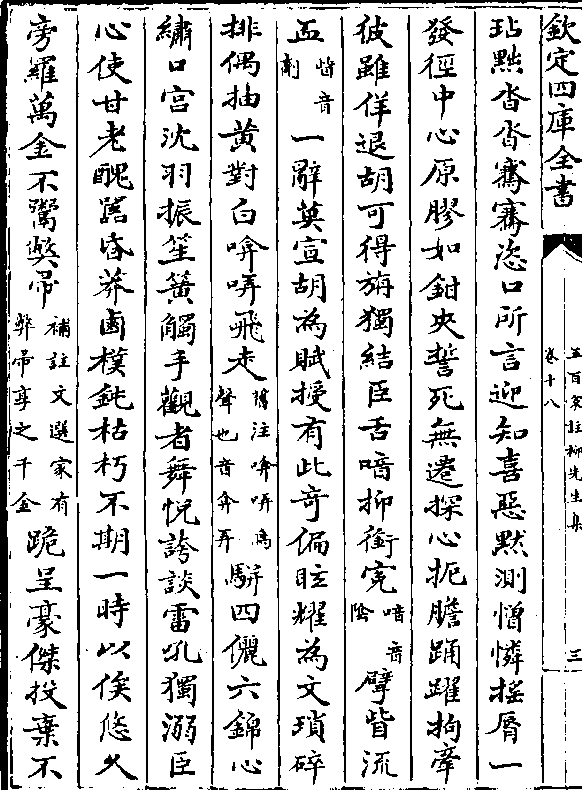 欽定四庫全書
五百家註柳先生集
卷十八
三
玷黜沓沓騫騫恣口所言迎知喜惡默測憎憐搖脣一
發徑中心原膠如鉗夾誓死無遷探心扼膽踊躍拘牽
彼雖佯退胡可得旃獨結臣舌喑抑銜寃喑音陰擘眥流
血眥音劑一辭莫宣胡為賦授有此奇偏眩耀為文瑣碎
排偶抽黃對白啽哢飛走舊注啽哢鳥聲也音弇弄駢四儷六錦心
繡口宫沈羽振笙簧觸手觀者舞悦誇談雷吼獨溺臣
心使甘老醜嚚昏莽鹵樸鈍枯朽不期一時以俟悠久
旁羅萬金不鬻獘帚補註文選家有弊帚享之千金跪呈豪傑投棄不